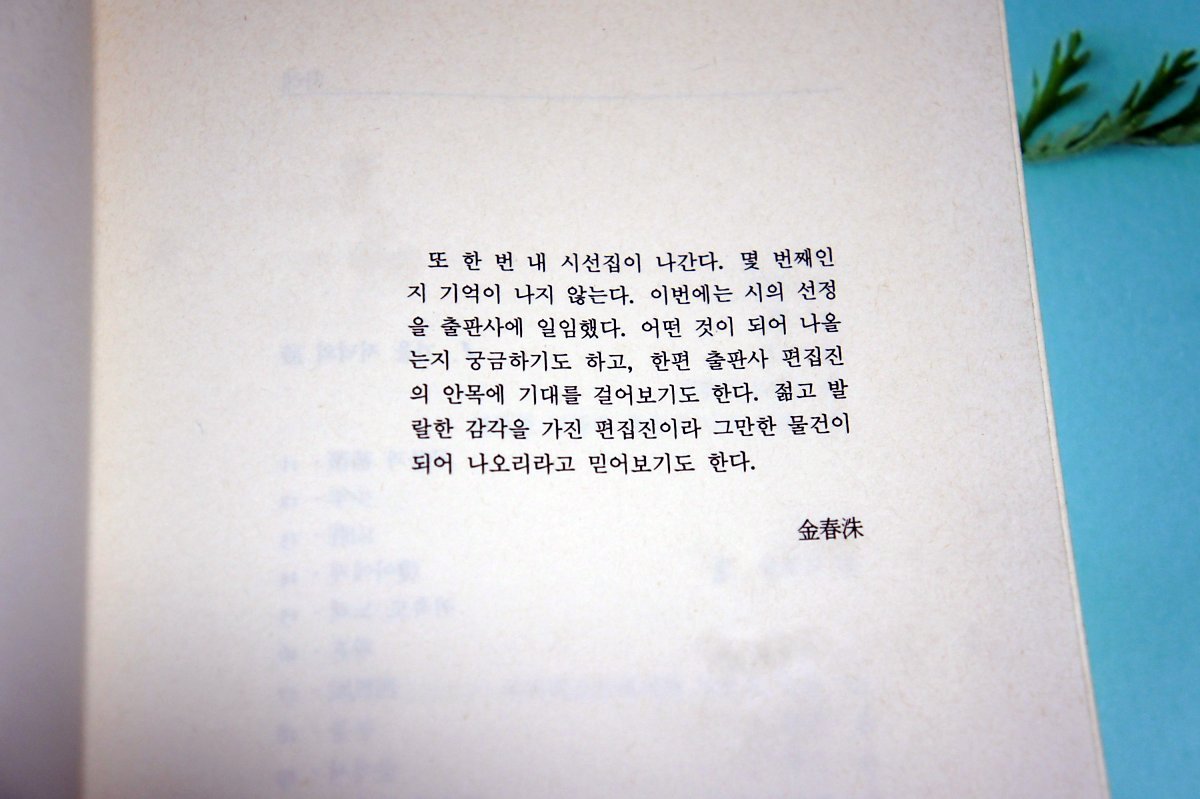 또 한 번 내 시선집이 나간다. 몇 번째인
지 기억이 나지 않는다. 이번에는 시의 선정
을 출판사에 일임했다. 어떤 것이 되어 나올
는지 궁금하기도 하고, 한편 출판사 편집진
의 안목에 기대를 걸어보기도 한다. 젊고 발
랄한 감각을 가진 편집진이라 그만한 물건이
되어 나오리라고 믿어보기도 한다.
金春洙